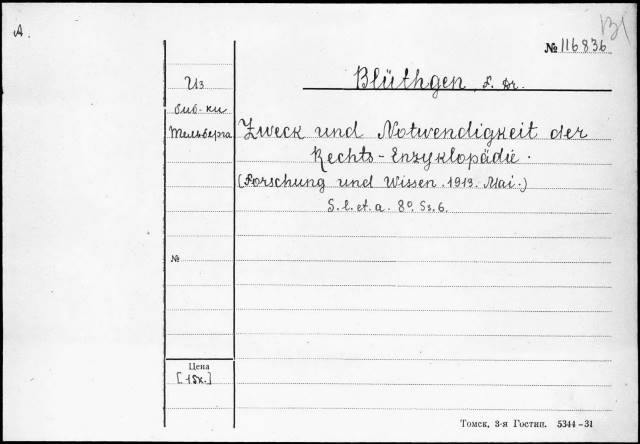 A.
B1
№ 116836
Blüthgen, F. Dr.
Из
биб-ки
Тельберга
Zweck und Notwendigkeit der
Rechts-Enzyklopädie.
(Forschung und Wissen. 1913. Mai.)
S. l. et. a. 8º. Ss. 6.
№
Цена
[15к.]
Томск, 3-я Гостип. 5344-31